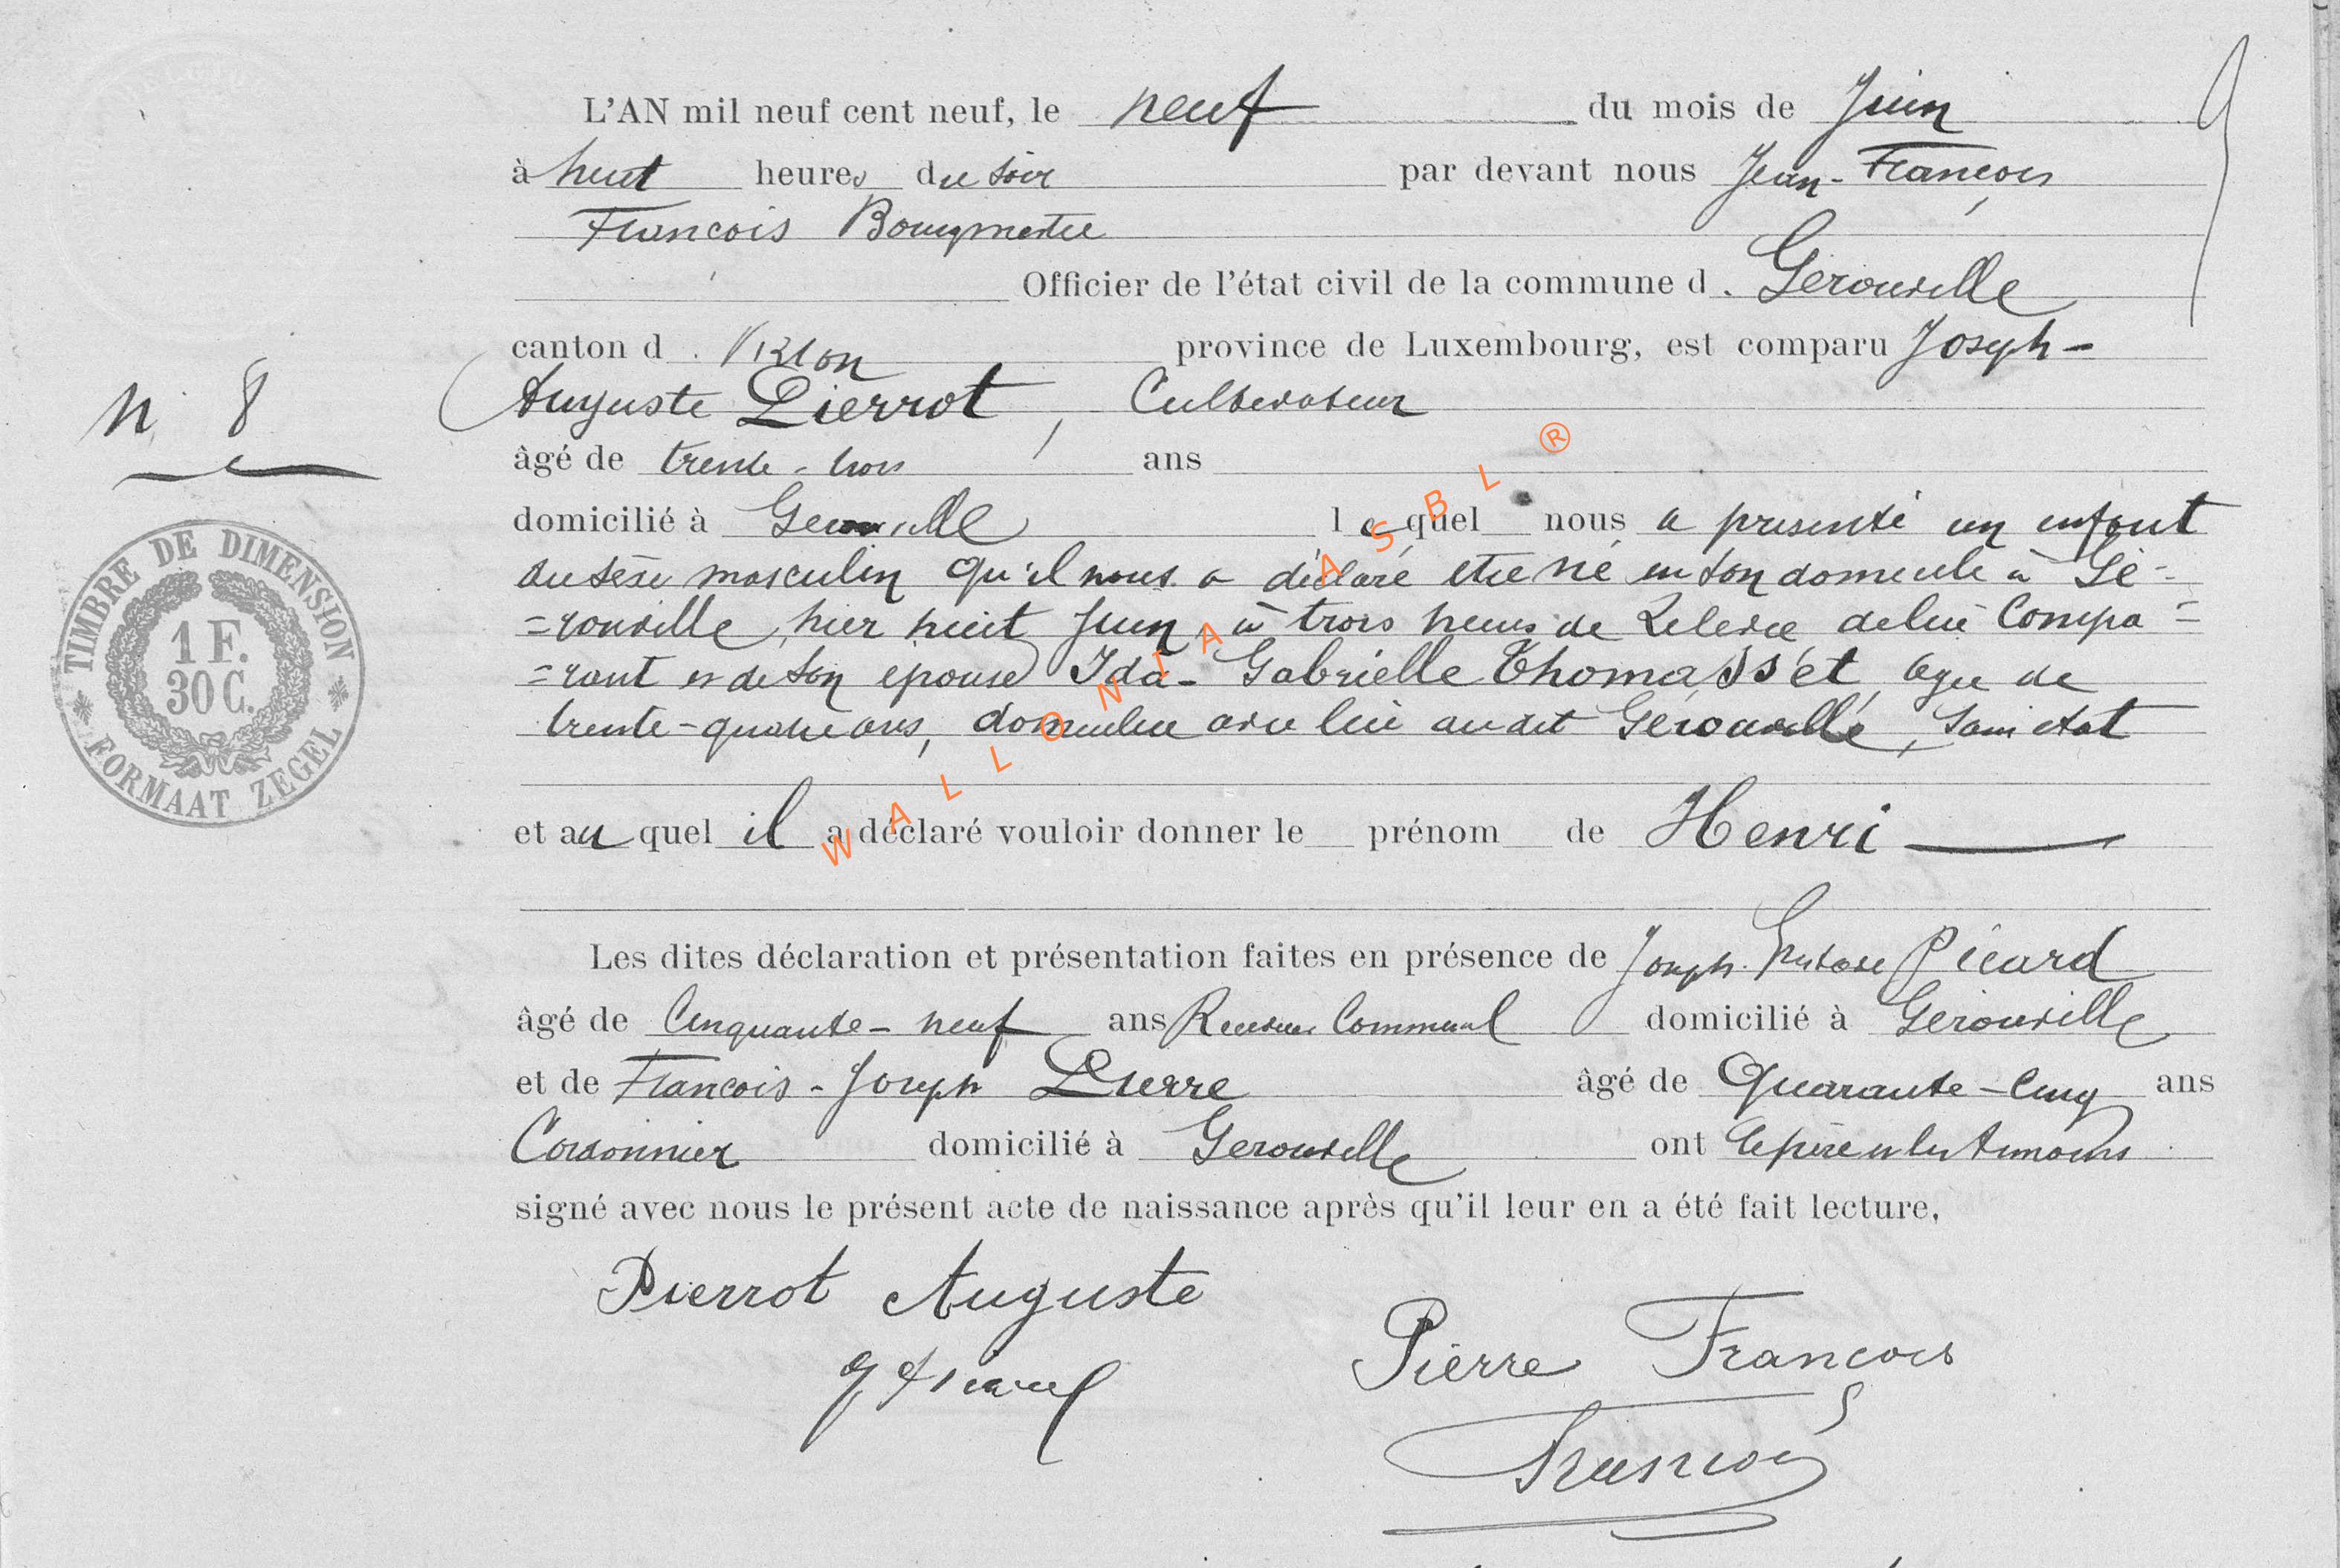 L'AN mil neuf cent neuf, le neuf du mois de Juin
à huit heures du soir par devant nous Jean-François
Francois Bourgmestre
Officier de l'état civil de la commune d. Gérouville
canton d. Virton province de Luxembourg, est comparu Joseph-
Auguste Pierrot, Cultivateur
N. 8
âgé de trente-trois ans
domicilié à Gérouville lequel nous a présenté un enfant
du sexe masculin qu'il nous a déclaré etre né en son domicile à Gé-
=rouville, hier huit Juin, à trois heures de Relevée de lui Compa=
=rant et de son épouse Ida-Gabrielle Thomasset, agée de
trente-quatre ans, domiciliée avec lui audit Gérouville, sans etat
et auquel il a déclaré vouloir donner le prénom de Henri
Les dites déclaration et présentation faites en présence de Joseph Picard
âgé de Cinquante-neuf ans Receveur Communal domicilié à Gérouville
et de Francois-Joseph Pierre âgé de Quarante-cinq ans
Cordonnier domicilié à Gerouville ont le père et les témoins
signé avec nous le présent acte de naissance après qu'il leur en a été fait lecture,
Pierrot Auguste
Pierre Francois
Francois
TIMBRE DE DIMENSION
1 F.
30 C.
FORMAAT ZEGEL
WALLONIA ASBL ®